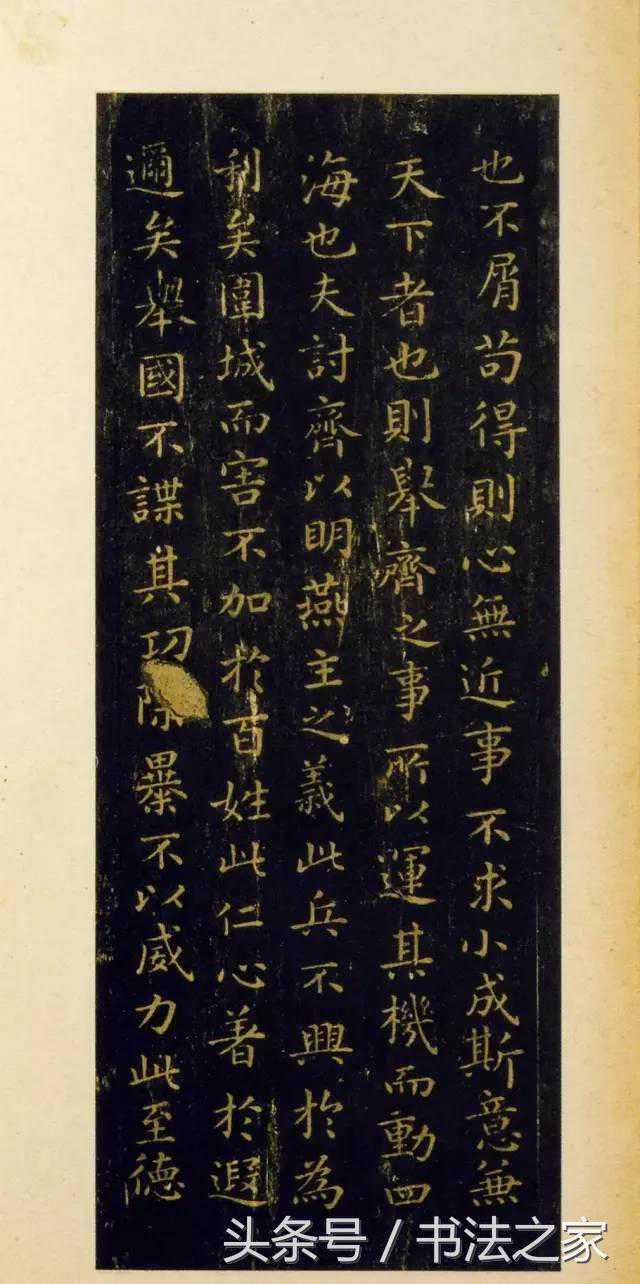 也不屑苟得則心無近事不求小成斯意無
天下者也則舉齊之事所以運其機而動四
海也夫討齊以明燕主之義此兵不興於為
利矣圍城而害不加於百姓此仁心著於遐
邇矣舉國不謀其功除暴不以威力此至德
头条号 / 书法之家